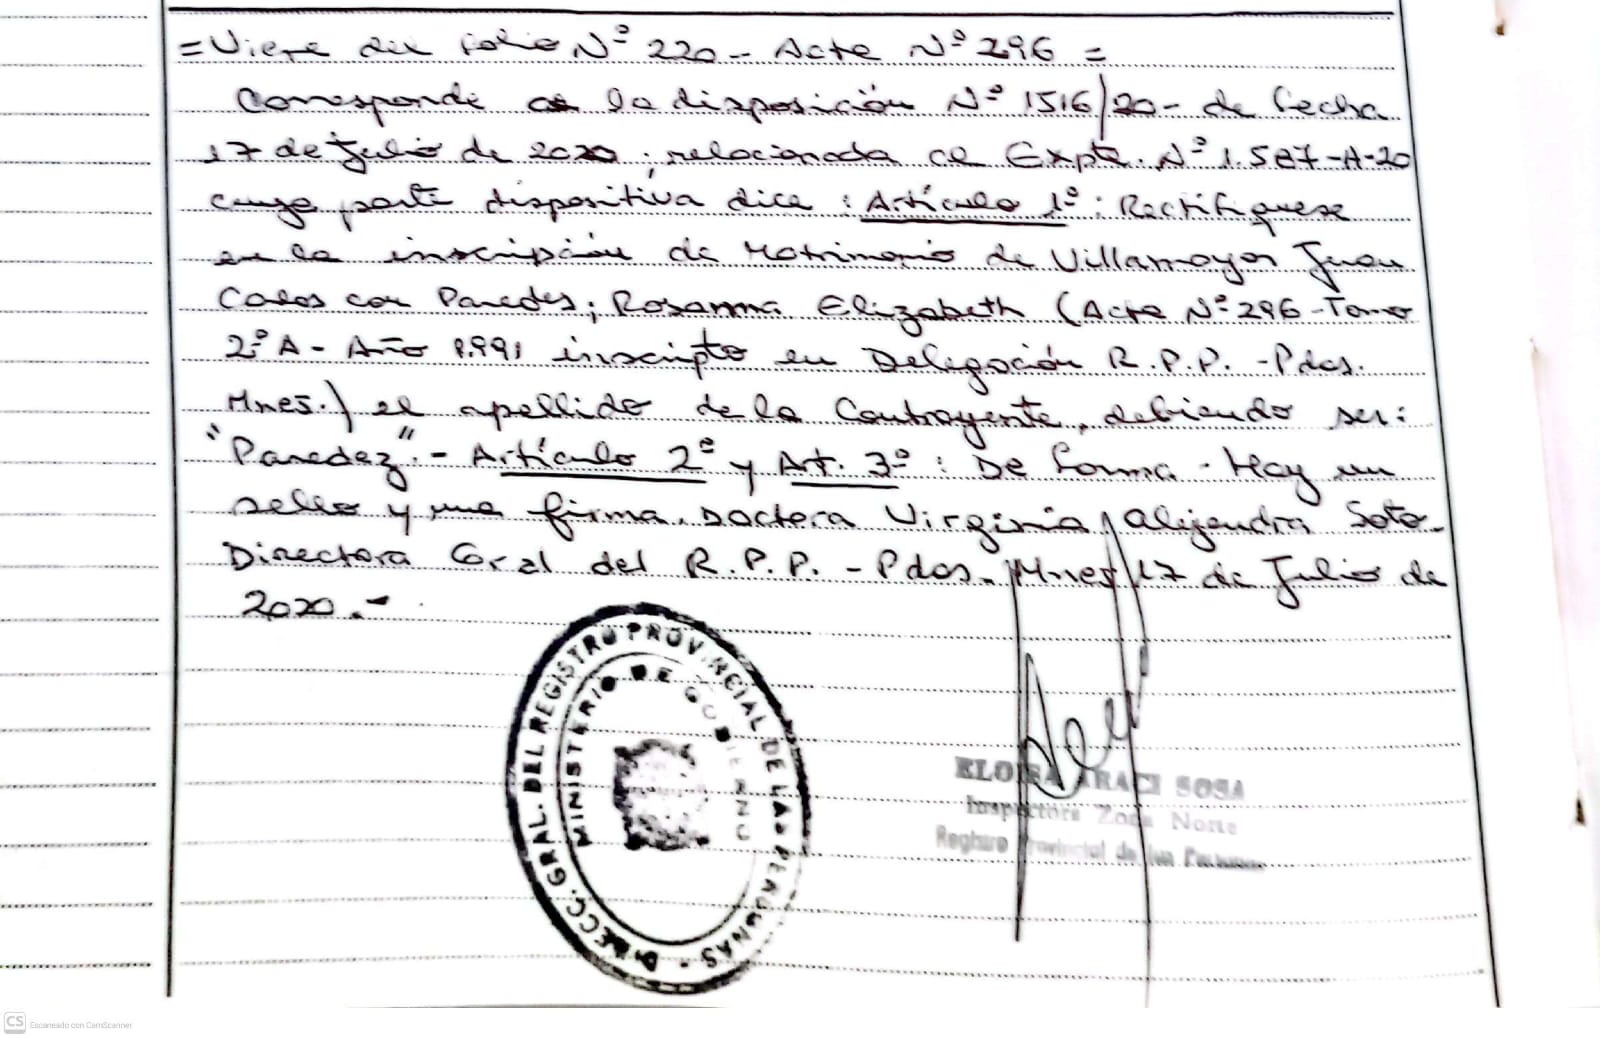 = Viene del folio Nº 220 - Acta Nº 296 =
Corresponde a la disposición Nº 1516/20 - de fecha
17 de Julio de 2020; relacionada al Expte. Nº 1.587-A-20
cuya parte dispositiva dice: Artículo 1º: Rectifiquese
en la inscripción de Matrimonio de Villamayor Juan
Carlos con Paredes; Rosanna Elizabeth (Acta Nº 296 - Tomo
2º A - Año 1.991 inscripto en Delegación R.P.P. - Pdas.
Mnes.) el apellido de la Contrayente, debiendo ser:
"Paredez". - Artículo 2º y Art. 3º: De forma - Hay un
sello y una firma. Doctora Virginia Alejandra Soto -
Directora Gral del R.P.P. - Pdas. Mnes 17 de Julio de
2020. -
DIRECC. GRAL. DEL REGISTRO PROVINCIAL DE LAS PERSONAS
MINISTERIO DE GOBIERNO
ELOISA ARACI SOSA
Inspectora Zona Norte
Registro Provincial de las Personas
CS Escaneado con CamScanner